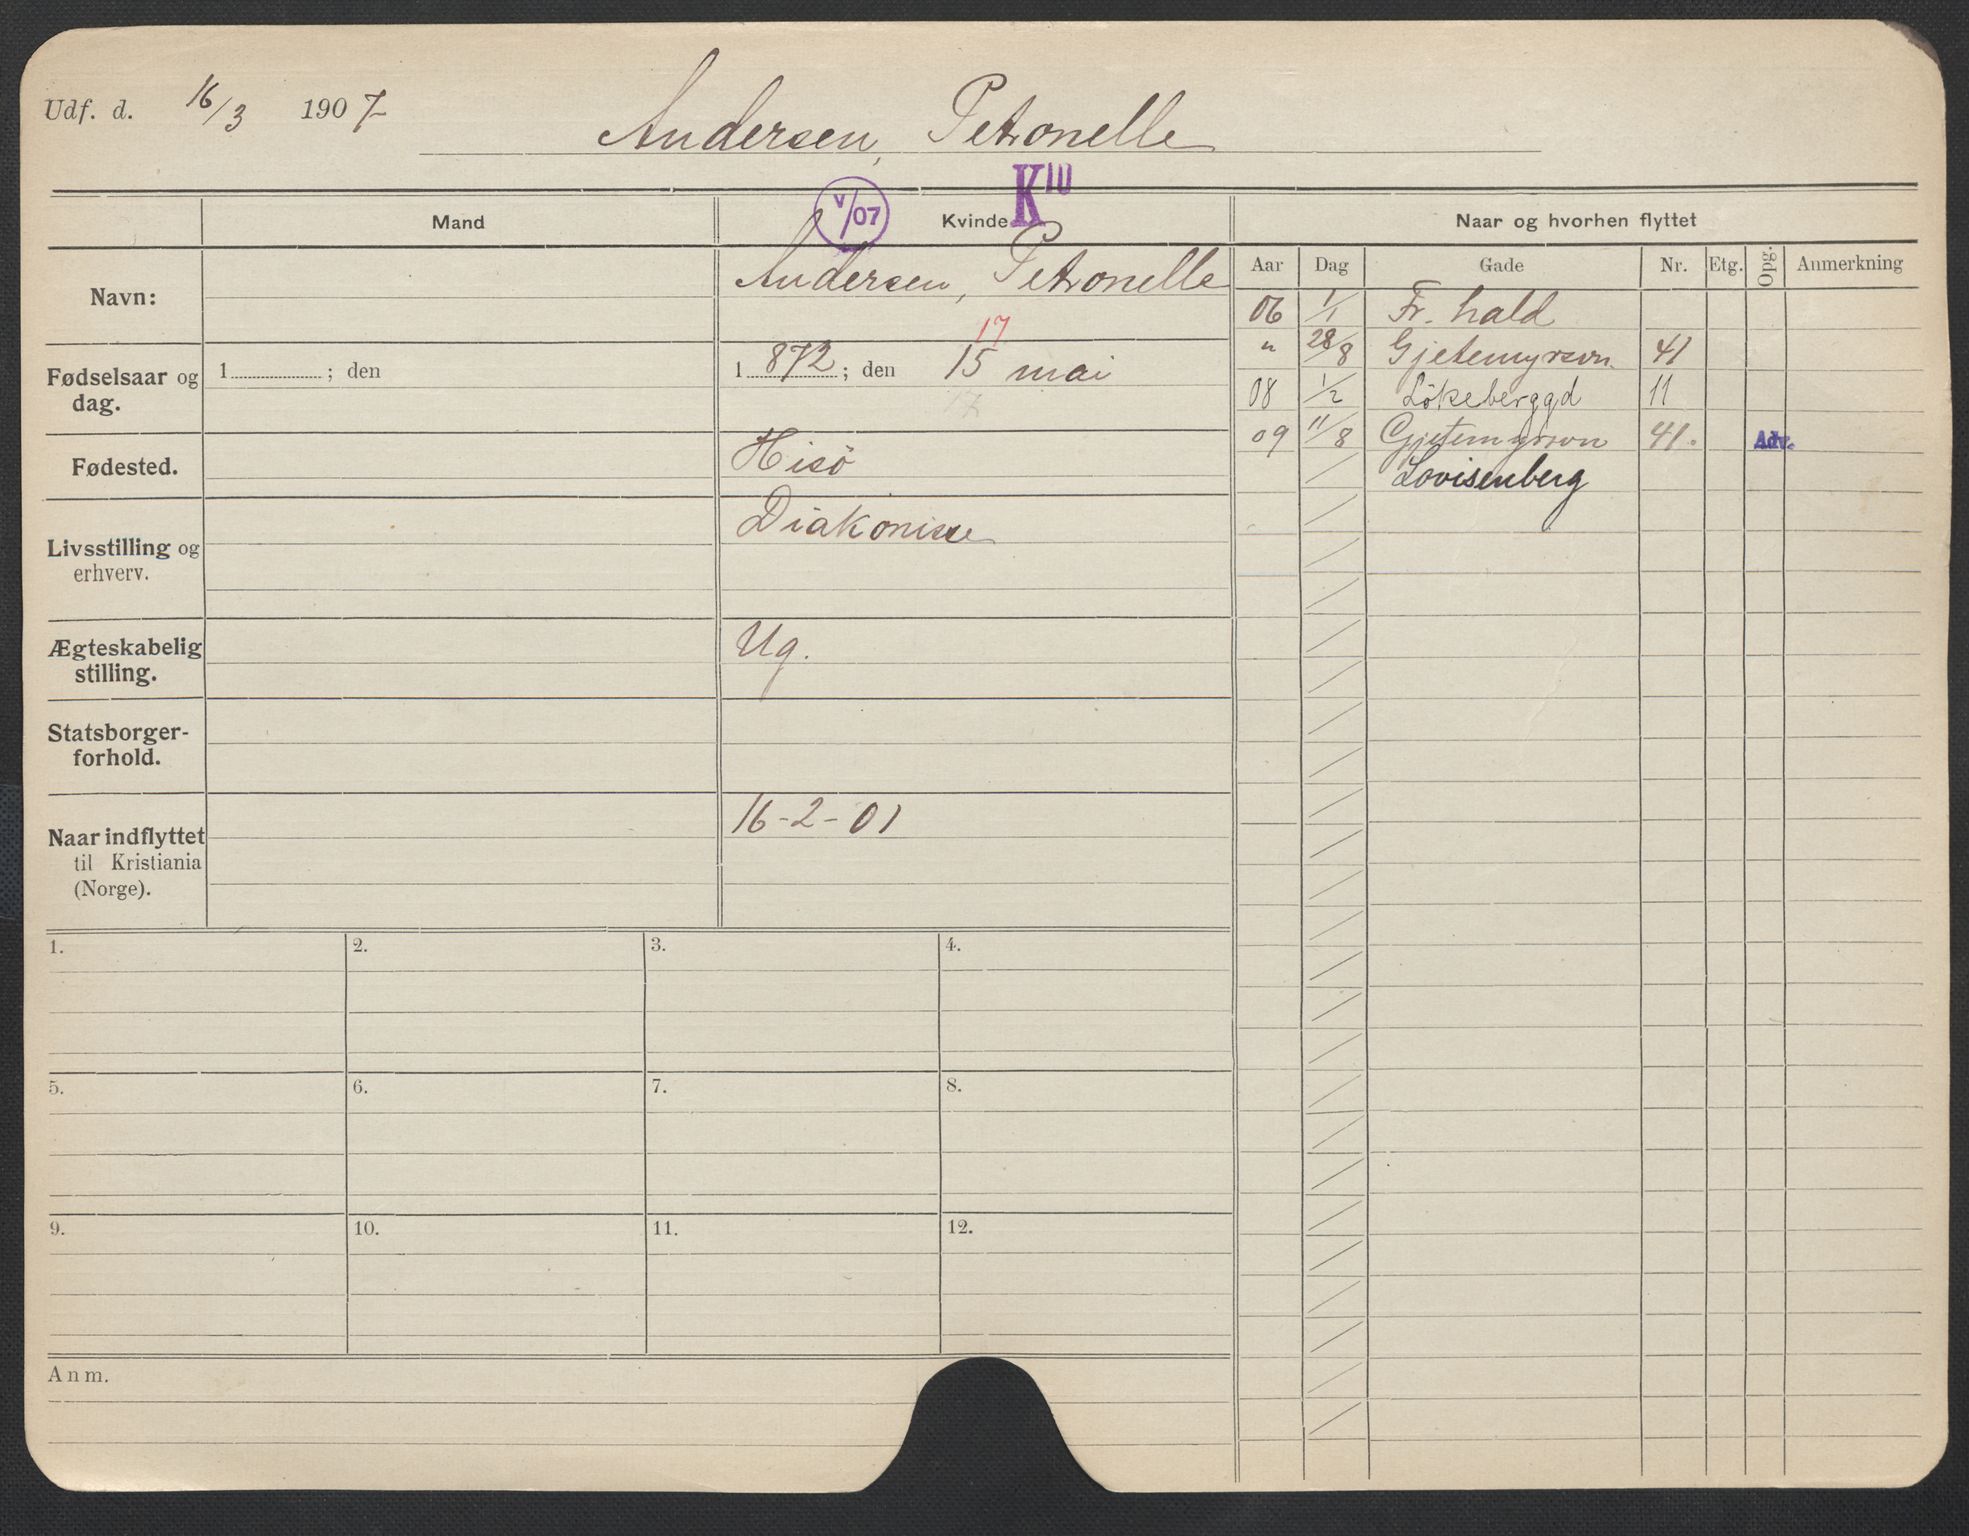 Udf. d. 16/3 1907
Andersen, Petronelle
V/07
K III
Mand
Kvinde
Naar og hvorhen flyttet
Aar Dag Gade Nr. Etg. Opg. Anmerkning
Navn: Andersen, Petronelle
Fødselsaar og dag.
1 ; den
17
1 872 ; den 15 mai
17
Fødested. Hisö
Livsstilling og erhverv. Diakonisse
Ægteskabelig stilling. Ug.
Statsborger-
forhold.
Naar indflyttet
til Kristiania
(Norge).
16-2-01
06 1/1 Fr. hald
" 28/8 Gjetemyrsvn. 41
08 1/2 Lökeberggd 11
09 11/8 Gjetemyrsvn 41. Adv.
Lovisenberg
1. 2. 3. 4.
5. 6. 7. 8.
9. 10. 11. 12.
Anm.